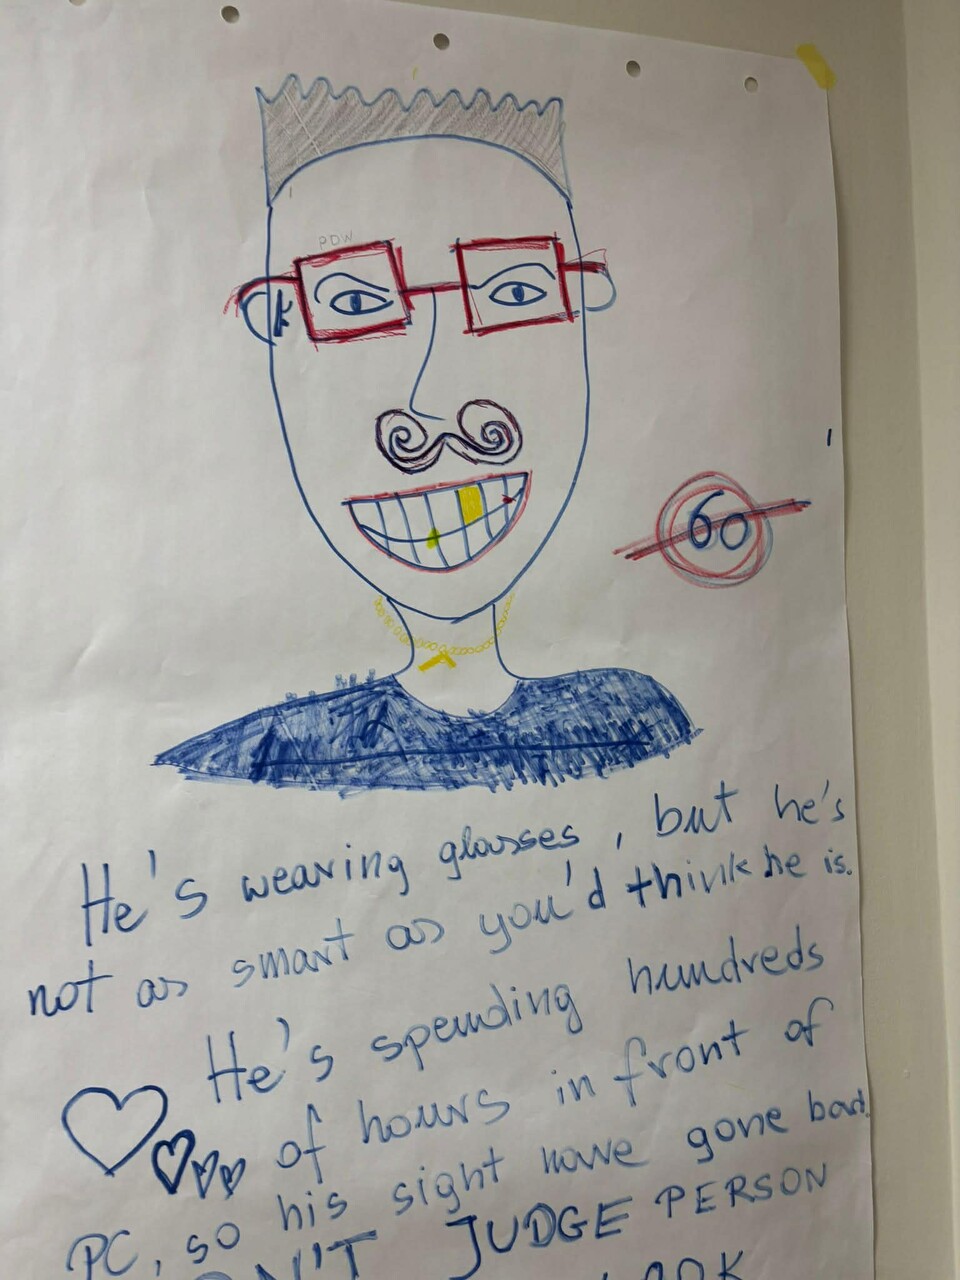 PDW
k
60
He's wearing glasses, but he's
not as smart as you'd think he is.
He's spending hundreds
of hours in front of
PC, so his sight have gone bad.
N'T JUDGE PERSON